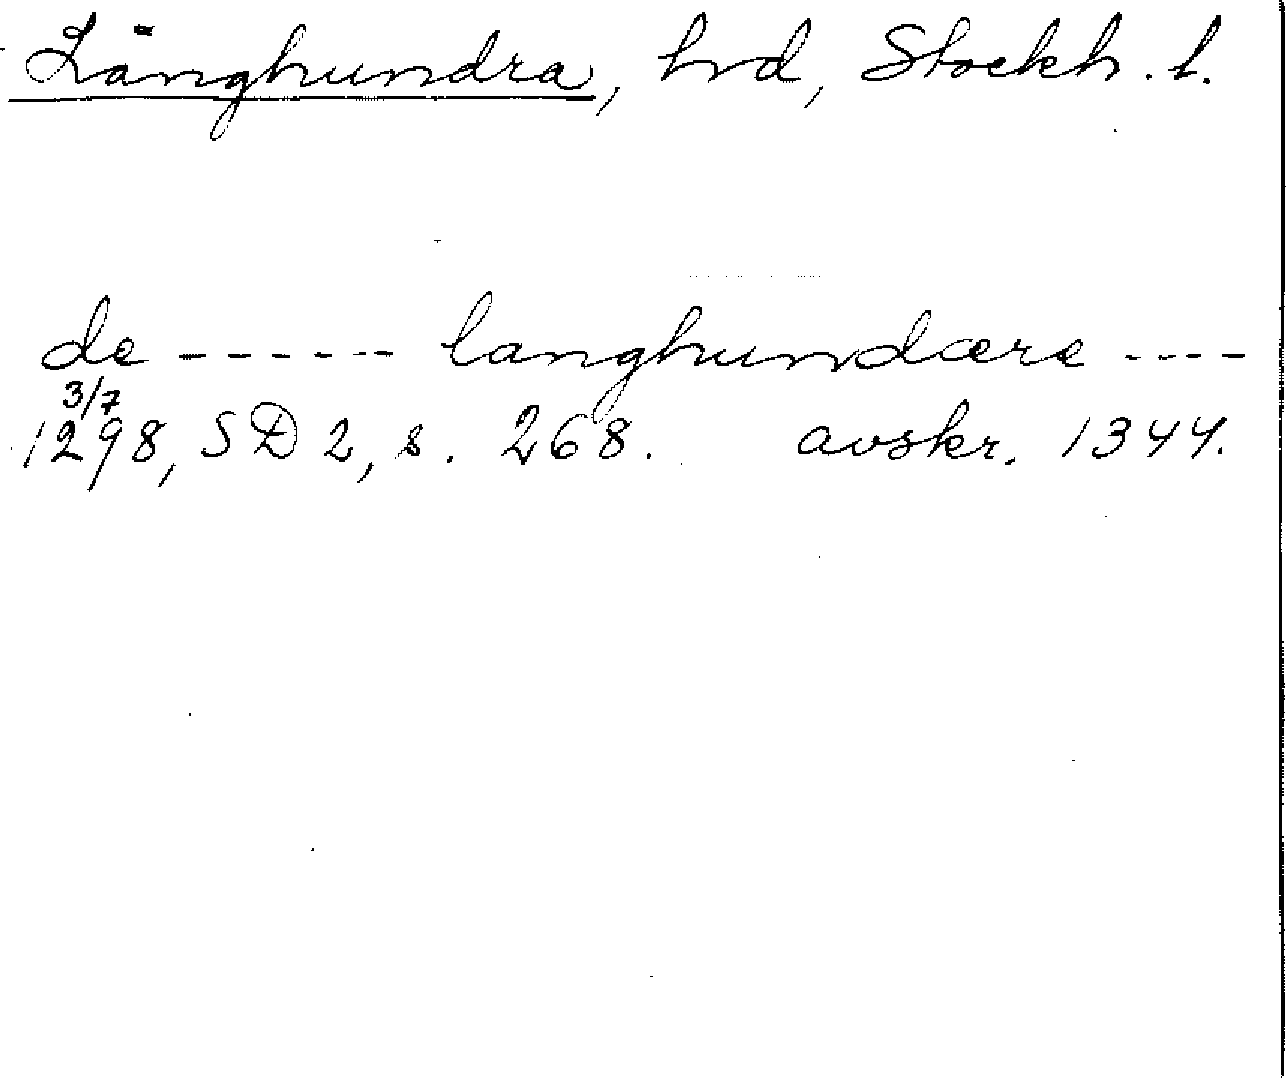 Långhundra, hrd, Stockh. l.
de ------ langhundære ----
3/7
1298, SD 2, s. 268. avskr. 1344.